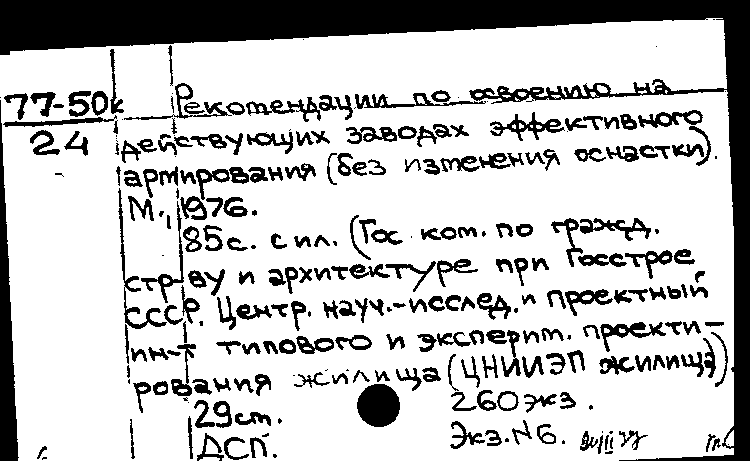 77-50к Рекомендации по освоению на
24 действующих заводах эффективного
армирования (без изменения оснастки).
М., 1976.
85с. с ил. (Гос ком. по гражд.
стр-ву и архитектуре при Госстрое
СССР. Центр. науч.-исслед. и проектный
ин-т типового и эксперим. проекти-
рования жилища (ЦНИИЭП жилища)).
29см. 260экз.
ДСП. Экз.N6.